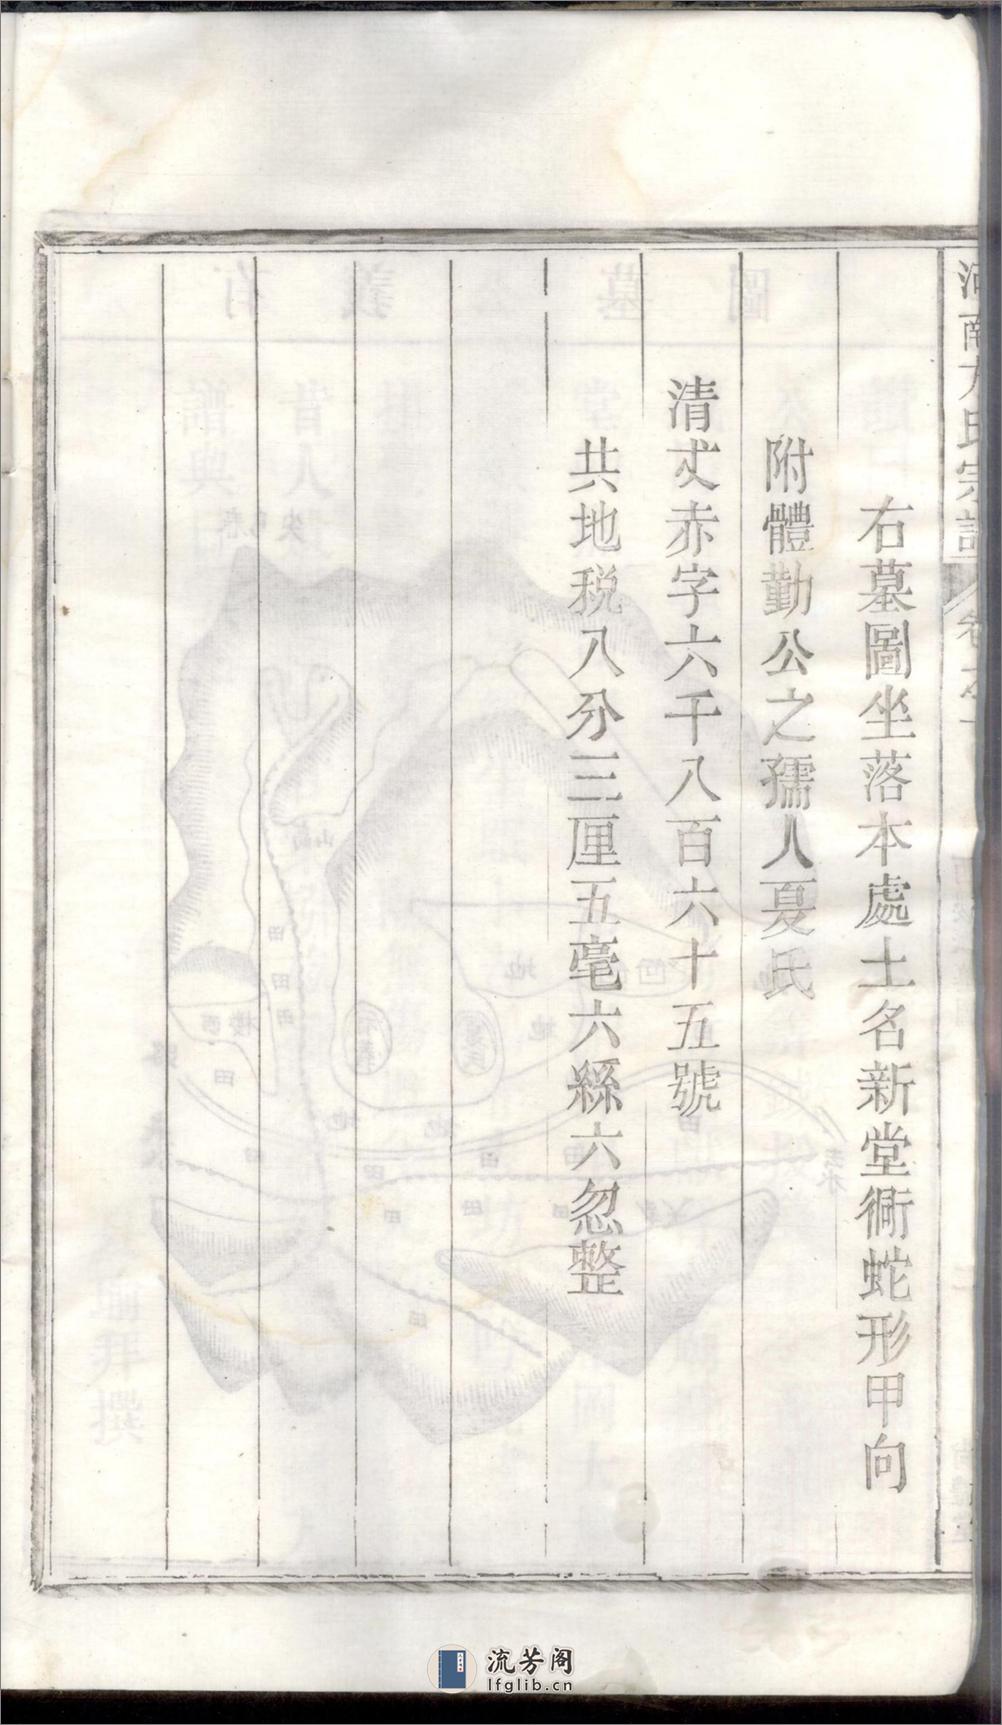 河南方氏宗譜
右墓圖坐落本處土名新堂衕蛇形甲向
附體勤公之孺人夏氏
清丈赤字六千八百六十五號
共地税八分三厘五毫六絲六忽整
流芳阁
lfglib.cn